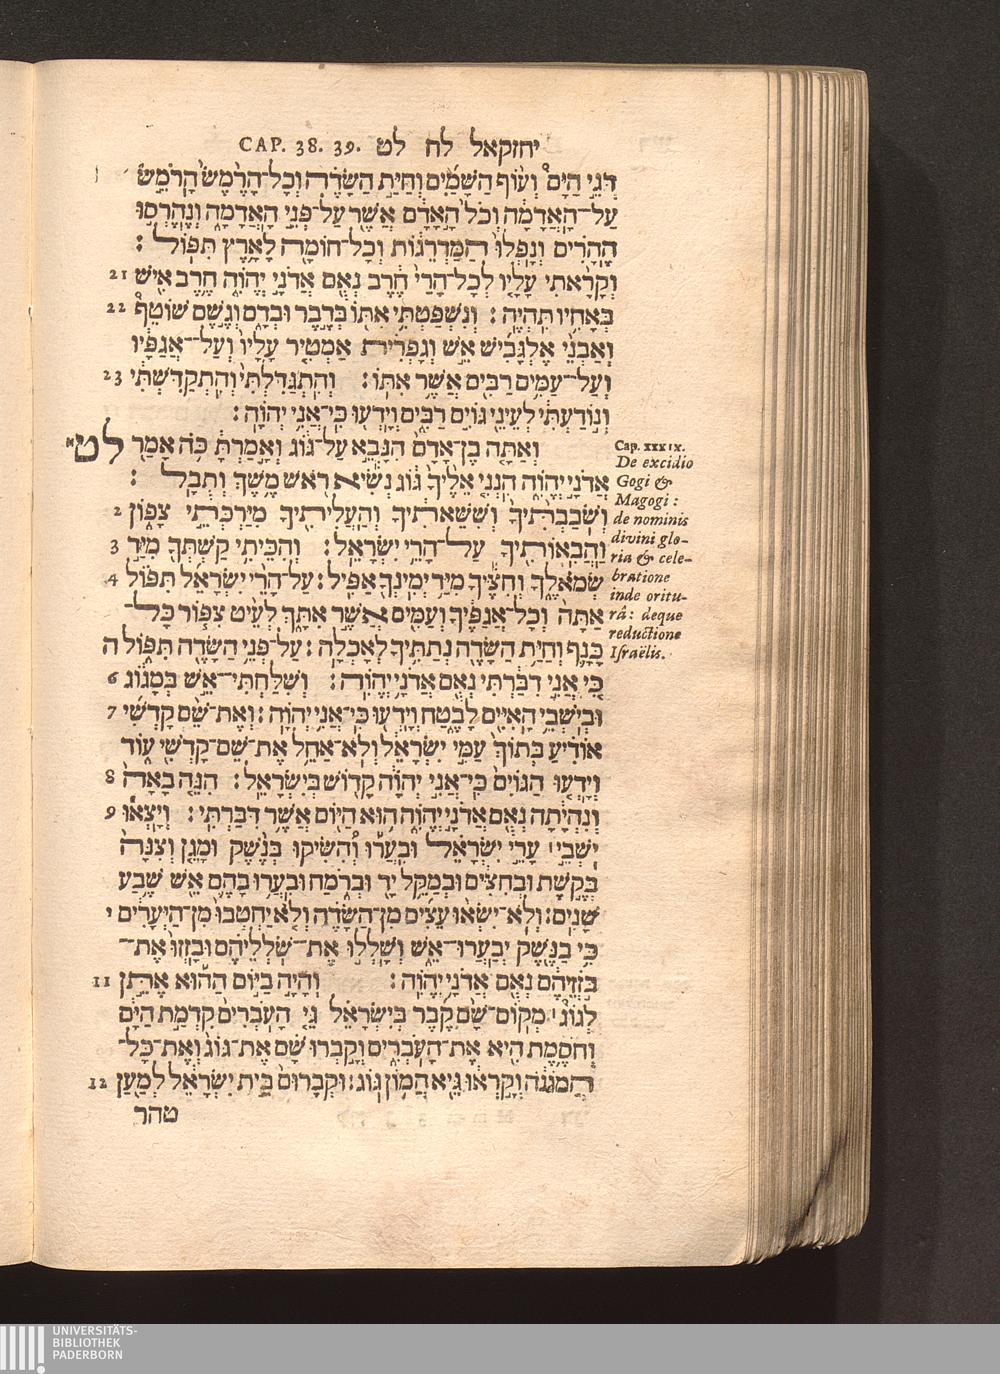 CAP. 38. 39. יחזקאל לח לט
דְּגֵי הַיָּם וְעוֹף הַשָּׁמַיִם וְחַיַּת הַשָּׂדֶה וְכָל־הָרֶמֶשׂ הָרֹמֵשׂ
עַל־הָאֲדָמָה וְכֹל הָאָדָם אֲשֶׁר עַל־פְּנֵי הָאֲדָמָה וְנֶהֶרְסוּ
הֶהָרִים וְנָפְלוּ הַמַּדְרֵגוֹת וְכָל־חוֹמָה לָאָרֶץ תִּפּוֹל :
וְקָרָאתִי עָלָיו לְכָל־הָרַי חֶרֶב נְאֻם אֲדֹנָי יְהֹוִה חֶרֶב אִישׁ 21
בְּאָחִיו תִּהְיֶה : וְנִשְׁפַּטְתִּי אִתּוֹ בְּדֶבֶר וּבְדָם וְגֶשֶׁם שׁוֹטֵף 22
וְאַבְנֵי אֶלְגָּבִישׁ אֵשׁ וְגָפְרִית אַמְטִיר עָלָיו וְעַל־אֲגַפָּיו
וְעַל־עַמִּים רַבִּים אֲשֶׁר אִתּוֹ : וְהִתְגַּדִּלְתִּי וְהִתְקַדִּשְׁתִּי 23
וְנוֹדַעְתִּי לְעֵינֵי גּוֹיִם רַבִּים וְיָדְעוּ כִּי־אֲנִי יְהֹוָה :
וְאַתָּה בֶן־אָדָם הִנָּבֵא עַל־גּוֹג וְאָמַרְתָּ כֹּה אָמַר לט א
אֲדֹנָי יְהֹוִה הִנְנִי אֵלֶיךָ גּוֹג נְשִׂיא רֹאשׁ מֶשֶׁךְ וְתֻבָל :
וְשֹׁבַבְתִּיךָ וְשִׁשֵּׁאתִיךָ וְהַעֲלִיתִיךָ מִיַּרְכְּתֵי צָפוֹן 2
וַהֲבִאוֹתִיךָ עַל־הָרֵי יִשְׂרָאֵל : וְהִכֵּיתִי קַשְׁתְּךָ מִיַּד 3
שְׂמֹאלֶךָ וְחִצֶּיךָ מִיַּד יְמִינְךָ אַפִּיל : עַל־הָרֵי יִשְׂרָאֵל תִּפּוֹל 4
אַתָּה וְכָל־אֲגַפֶּיךָ וְעַמִּים אֲשֶׁר אִתָּךְ לְעֵיט צִפּוֹר כָּל־
כָּנָף וְחַיַּת הַשָּׂדֶה נְתַתִּיךָ לְאָכְלָה : עַל־פְּנֵי הַשָּׂדֶה תִּפּוֹל ה
כִּי אֲנִי דִבַּרְתִּי נְאֻם אֲדֹנָי יְהֹוִה : וְשִׁלַּחְתִּי־אֵשׁ בְּמָגוֹג 6
וּבְיֹשְׁבֵי הָאִיִּים לָבֶטַח וְיָדְעוּ כִּי־אֲנִי יְהֹוָה : וְאֶת־שֵׁם קָדְשִׁי 7
אוֹדִיעַ בְּתוֹךְ עַמִּי יִשְׂרָאֵל וְלֹא־אַחֵל אֶת־שֵׁם־קָדְשִׁי עוֹד
וְיָדְעוּ הַגּוֹיִם כִּי־אֲנִי יְהֹוָה קָדוֹשׁ בְּיִשְׂרָאֵל : הִנֵּה בָאָה 8
וְנִהְיָתָה נְאֻם אֲדֹנָי יְהֹוִה הוּא הַיּוֹם אֲשֶׁר דִּבַּרְתִּי : וְיָצְאוּ 9
יֹשְׁבֵי ׀ עָרֵי יִשְׂרָאֵל וּבִעֲרוּ וְהִשִּׂיקוּ בְּנֶשֶׁק וּמָגֵן וְצִנָּה
בְּקֶשֶׁת וּבְחִצִּים וּבְמַקֵּל יָד וּבְרֹמַח וּבִעֲרוּ בָהֶם אֵשׁ שֶׁבַע
שָׁנִים : וְלֹא־יִשְׂאוּ עֵצִים מִן־הַשָּׂדֶה וְלֹא יַחְטְבוּ מִן־הַיְּעָרִים י
כִּי בַנֶּשֶׁק יְבַעֲרוּ־אֵשׁ וְשָׁלְלוּ אֶת־שֹׁלְלֵיהֶם וּבָזְזוּ אֶת־
בֹּזְזֵיהֶם נְאֻם אֲדֹנָי יְהֹוִה : וְהָיָה בַיּוֹם הַהוּא אֶתֵּן 11
לְגוֹג ׀ מְקוֹם־שָׁם קֶבֶר בְּיִשְׂרָאֵל גֵּי הָעֹבְרִים קִדְמַת הַיָּם
וְחֹסֶמֶת הִיא אֶת־הָעֹבְרִים וְקָבְרוּ שָׁם אֶת־גּוֹג וְאֶת־כָּל־
הֲמוֹנֹה וְקָרְאוּ גֵּיא הֲמוֹן גּוֹג : וּקְבָרוּם בֵּית יִשְׂרָאֵל לְמַעַן 12
טהר
Cap. XXXIX.
De excidio
Gogi &
Magogi :
de nominis
divini glo-
ria & cele-
bratione
inde oritu-
râ : deque
reductione
Israëlis.
UNIVERSITÄTS-
BIBLIOTHEK
PADERBORN